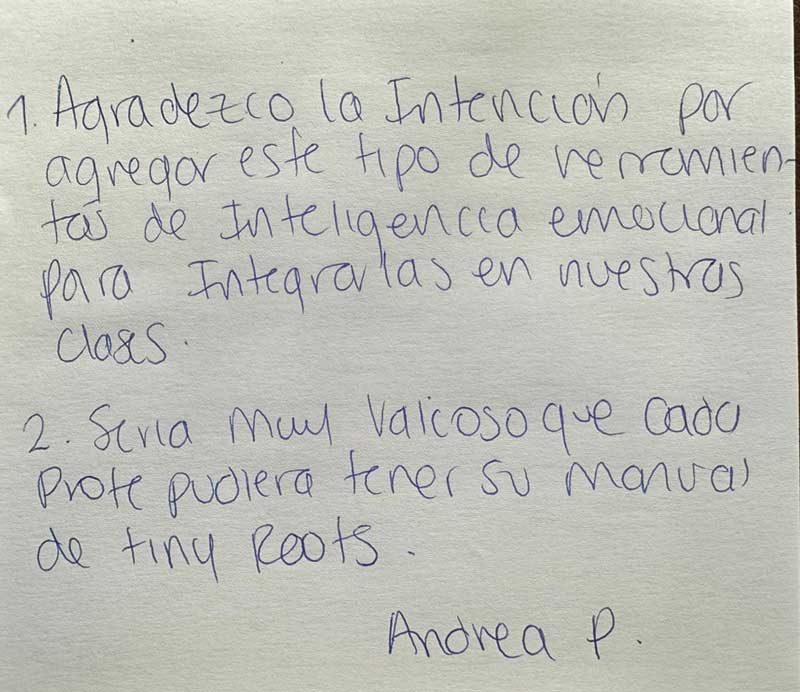 1. Agradezco la Intención por
agregar este tipo de herramien-
tas de Inteligencia emocional
para Integrarlas en nuestras
clases.
2. Seria muy valioso que cada
Profe pudiera tener su manual
de tiny Roots.
Andrea P.